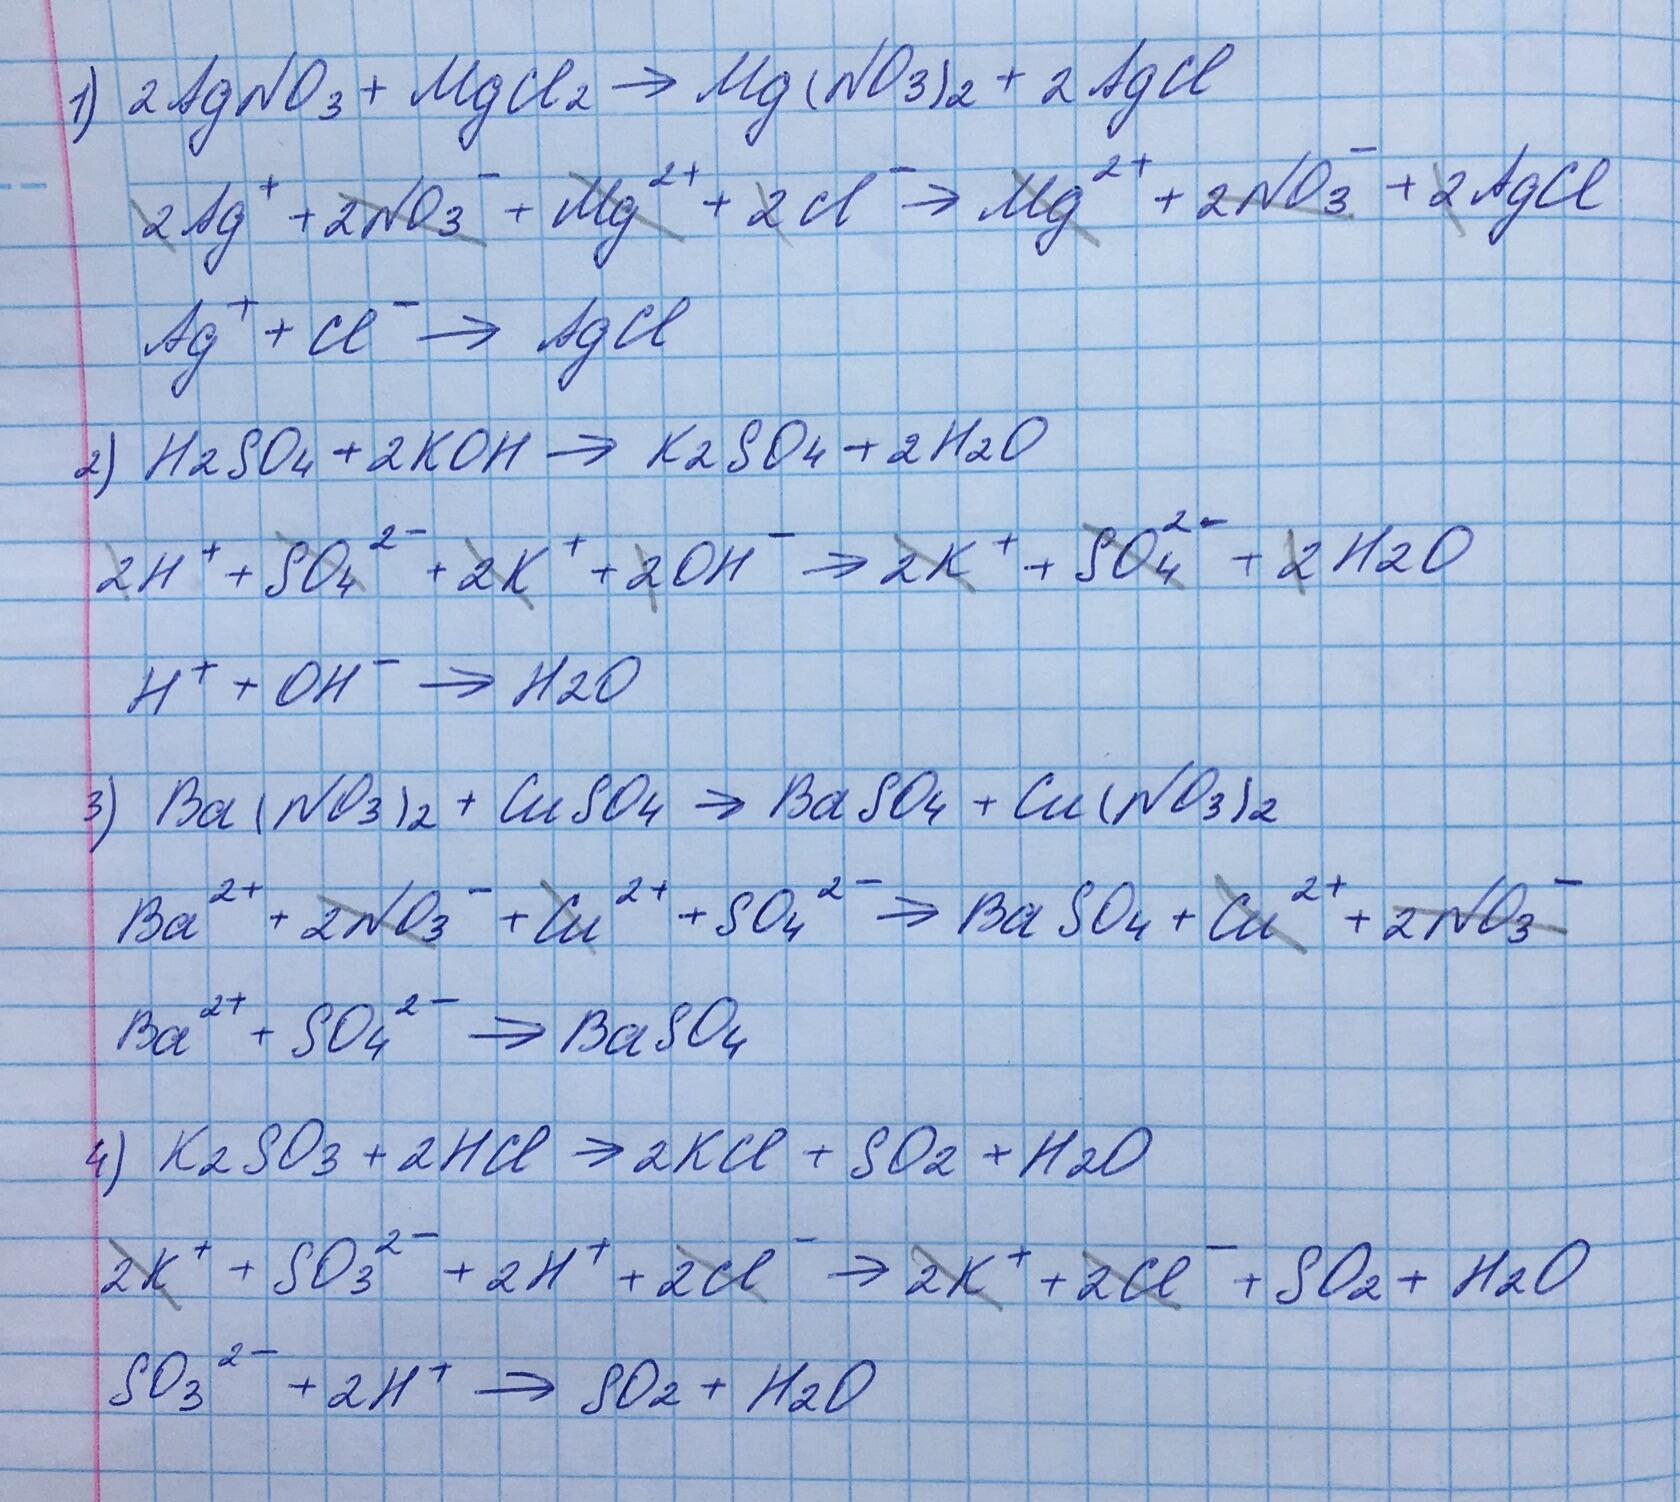 1) 2AgNO3 + MgCl2 → Mg(NO3)2 + 2AgCl
2Ag⁺ + 2NO3⁻ + Mg²⁺ + 2Cl⁻ → Mg²⁺ + 2NO3⁻ + 2AgCl
Ag⁺ + Cl⁻ → AgCl
2) H2SO4 + 2KOH → K2SO4 + 2H2O
2H⁺ + SO4²⁻ + 2K⁺ + 2OH⁻ → 2K⁺ + SO4²⁻ + 2H2O
H⁺ + OH⁻ → H2O
3) Ba(NO3)2 + CuSO4 → BaSO4 + Cu(NO3)2
Ba²⁺ + 2NO3⁻ + Cu²⁺ + SO4²⁻ → BaSO4 + Cu²⁺ + 2NO3⁻
Ba²⁺ + SO4²⁻ → BaSO4
4) K2SO3 + 2HCl → 2KCl + SO2 + H2O
2K⁺ + SO3²⁻ + 2H⁺ + 2Cl⁻ → 2K⁺ + 2Cl⁻ + SO2 + H2O
SO3²⁻ + 2H⁺ → SO2 + H2O